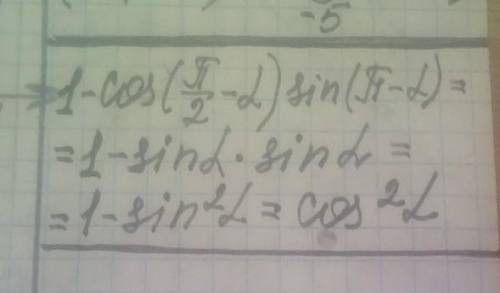 -5
⇒1-cos(π/2-α)sin(π-α)=
=1-sinα·sinα=
=1-sin²α=cos²α